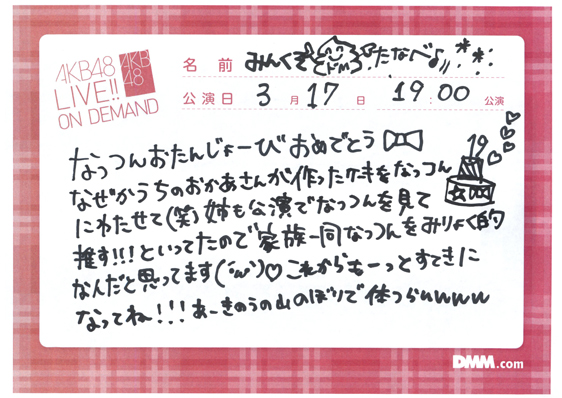 AKB48
LIVE!!
ON DEMAND
AKB
48
名前 みんくす ドM たなべ♪!!
公演日 3月17日 19:00 公演
なっつんおたんじょーびおめでとう
19
なぜかうちのおかあさんが作ったケーキをなっつん
にわたせて(笑)姉も公演でなっつんを見て
推す!!!といってたので家族一同なっつんをみりょく的
なんだと思ってます(´ω`)♡これからもーっとすてきに
なってね!!!あーきのうの山のぼりで体つらいwwww
DMM.com